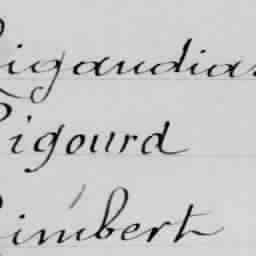 Rigaudias
Rigourd
Rimbert